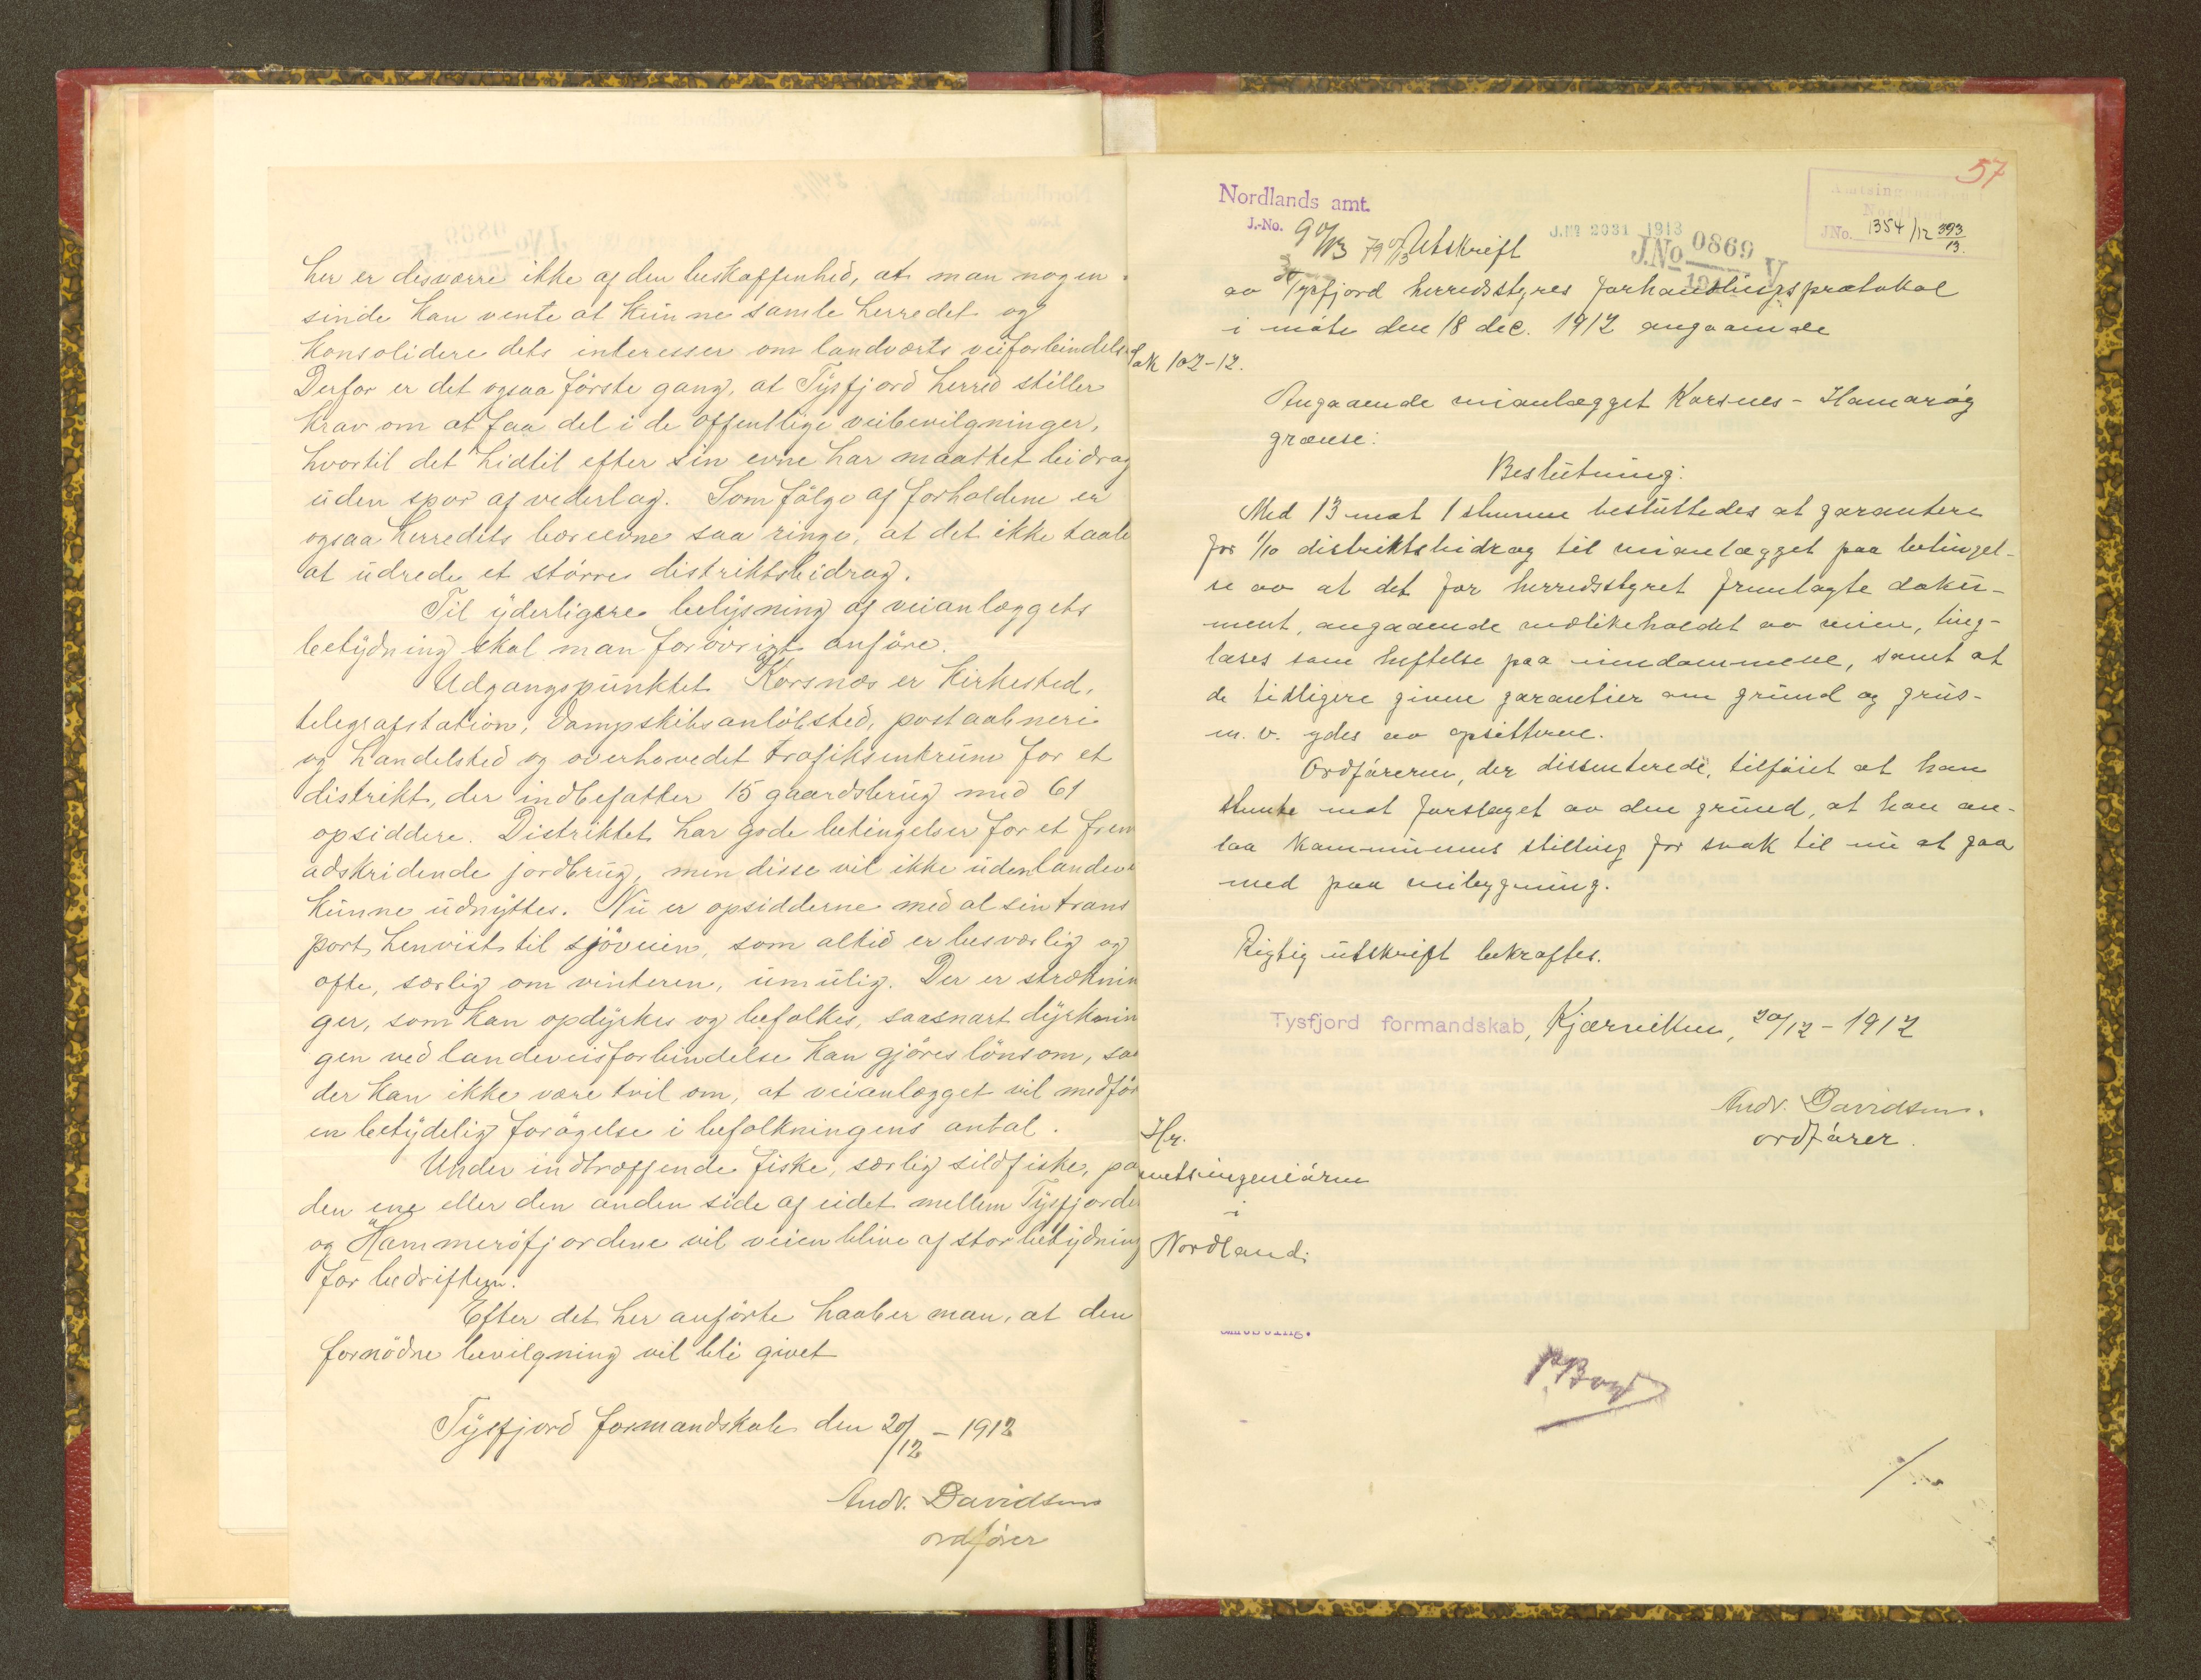 her er desværre ikke af den beskaffenhed, at man nogen-
sinde kan vente at kunne samle herredet og
konsolidere dets interesser om landværts veiforbindelse
Derfor er det ogsaa förste gang, at Tysfjord herred stiller
krav om at faa del i de offentlige veibevilgninger,
hvortil det hidtil efter sin evne har maattet bidrag
uden spor af vederlag. Som fölge af forholdene er
ogsaa herredets bæreevne saa ringe, at det ikke taale
at udrede et större distriktsbidrag.
Til yderligere belysning af veianlæggets
betydning skal man forövrigt anföre.
Udgangspunktet Korsnæs er kirkested,
telegrafstation, dampskibsanlöbsted, postaabneri
og handelsted og overhovedet trafiksentrum for et
distrikt, der indbefatter 15 gaardsbrug med 61
opsiddere. Distriktet har gode betingelser for et frem
adskridende jordbrug, men disse vil ikke uden landeve
kunne udnyttes. Nu er opsidderne med al sin trans
port henvist til sjöveien, som altid er besværlig og
ofte, særlig om vinteren, umulig. Der er stræknin
ger, som kan opdyrkes og befolkes, saasnart dyrknin
gen ved landeveisforbindelse kan gjöres lönsom, saa
der kan ikke være tvil om, at veianlægget vil medför
en betydelig forögelse i befolkningens antal.
Under indtræffende fiske, særlig sildfiske, paa
den ene eller den anden side af eidet mellem Tysfjorden
og Hammeröfjordene vil veien blive af stor betydning
for bedriften.
Efter det her anförte haaber man, at den
fornödne bevilgning vil bli givet
Tysfjord formandskab den 20/12 - 1912
Andr. Davidsen
ordförer
57
Nordlands amt.
J.-No. 90/13 79/13 Utskrift
J.No 2031 1913
J.No 0869 V
JNo. 1354/12 393/13.
av Tysfjord herredsstyres forhandlingsprotokol
i möte den 18 dec. 1912 angaaende
Sak 102-12.
Angaaende veianlægget Korsnes - Hamaröy
grænse:
Beslutning:
Med 13 mot 1 stemme besluttedes at garantere
for 1/10 distriktsbidrag til veianlægget paa betingel-
se av at det for herredsstyret fremlagte doku-
ment, angaaende vedlikeholdet av veien, ting-
læses som heftelse paa eiendommene, samt at
de tidligere givne garantier om grund og grus-
m. v. ydes av opsitterne.
Ordföreren, der dissenterede, tilföiet at han
stemte mot forslaget av den grund, at han an-
saa kommunens stilling for svak til nu at gaa
med paa veibygning.
Rigtig utskrift bekræftes.
Tysfjord formandskab, Kjærviken, 20/12 - 1912
Andr. Davidsen.
ordförer.
Hr.
amtsingeniören
i
Nordland.